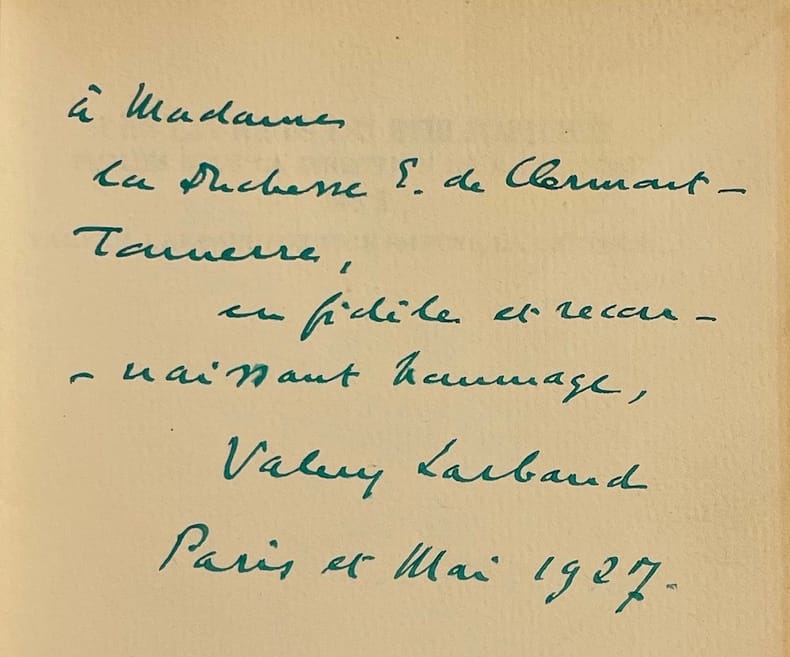 à Madame
la Duchesse E. de Clermont-
Tonnerre,
en fidèle et recon-
-naissant hommage,
Valery Larbaud
Paris et Mai 1927.